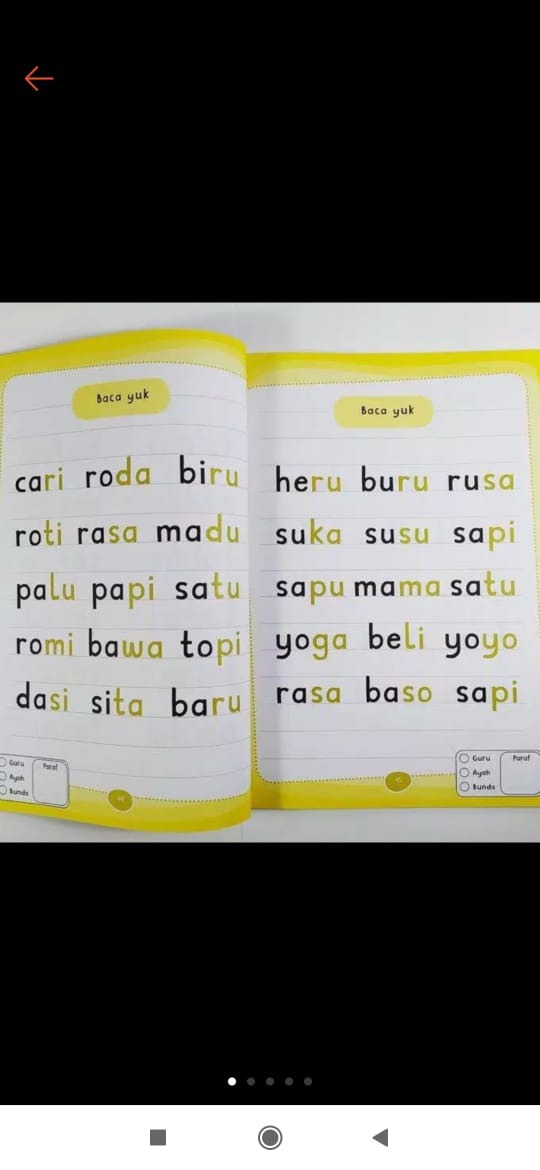 Baca yuk
cari roda biru
roti rasa madu
palu papi satu
romi bawa topi
dasi sita baru
Guru
Ayah
Bunda
Paraf
44
Baca yuk
heru buru rusa
suka susu sapi
sapu mama satu
yoga beli yoyo
rasa baso sapi
Guru
Ayah
Bunda
Paraf
45